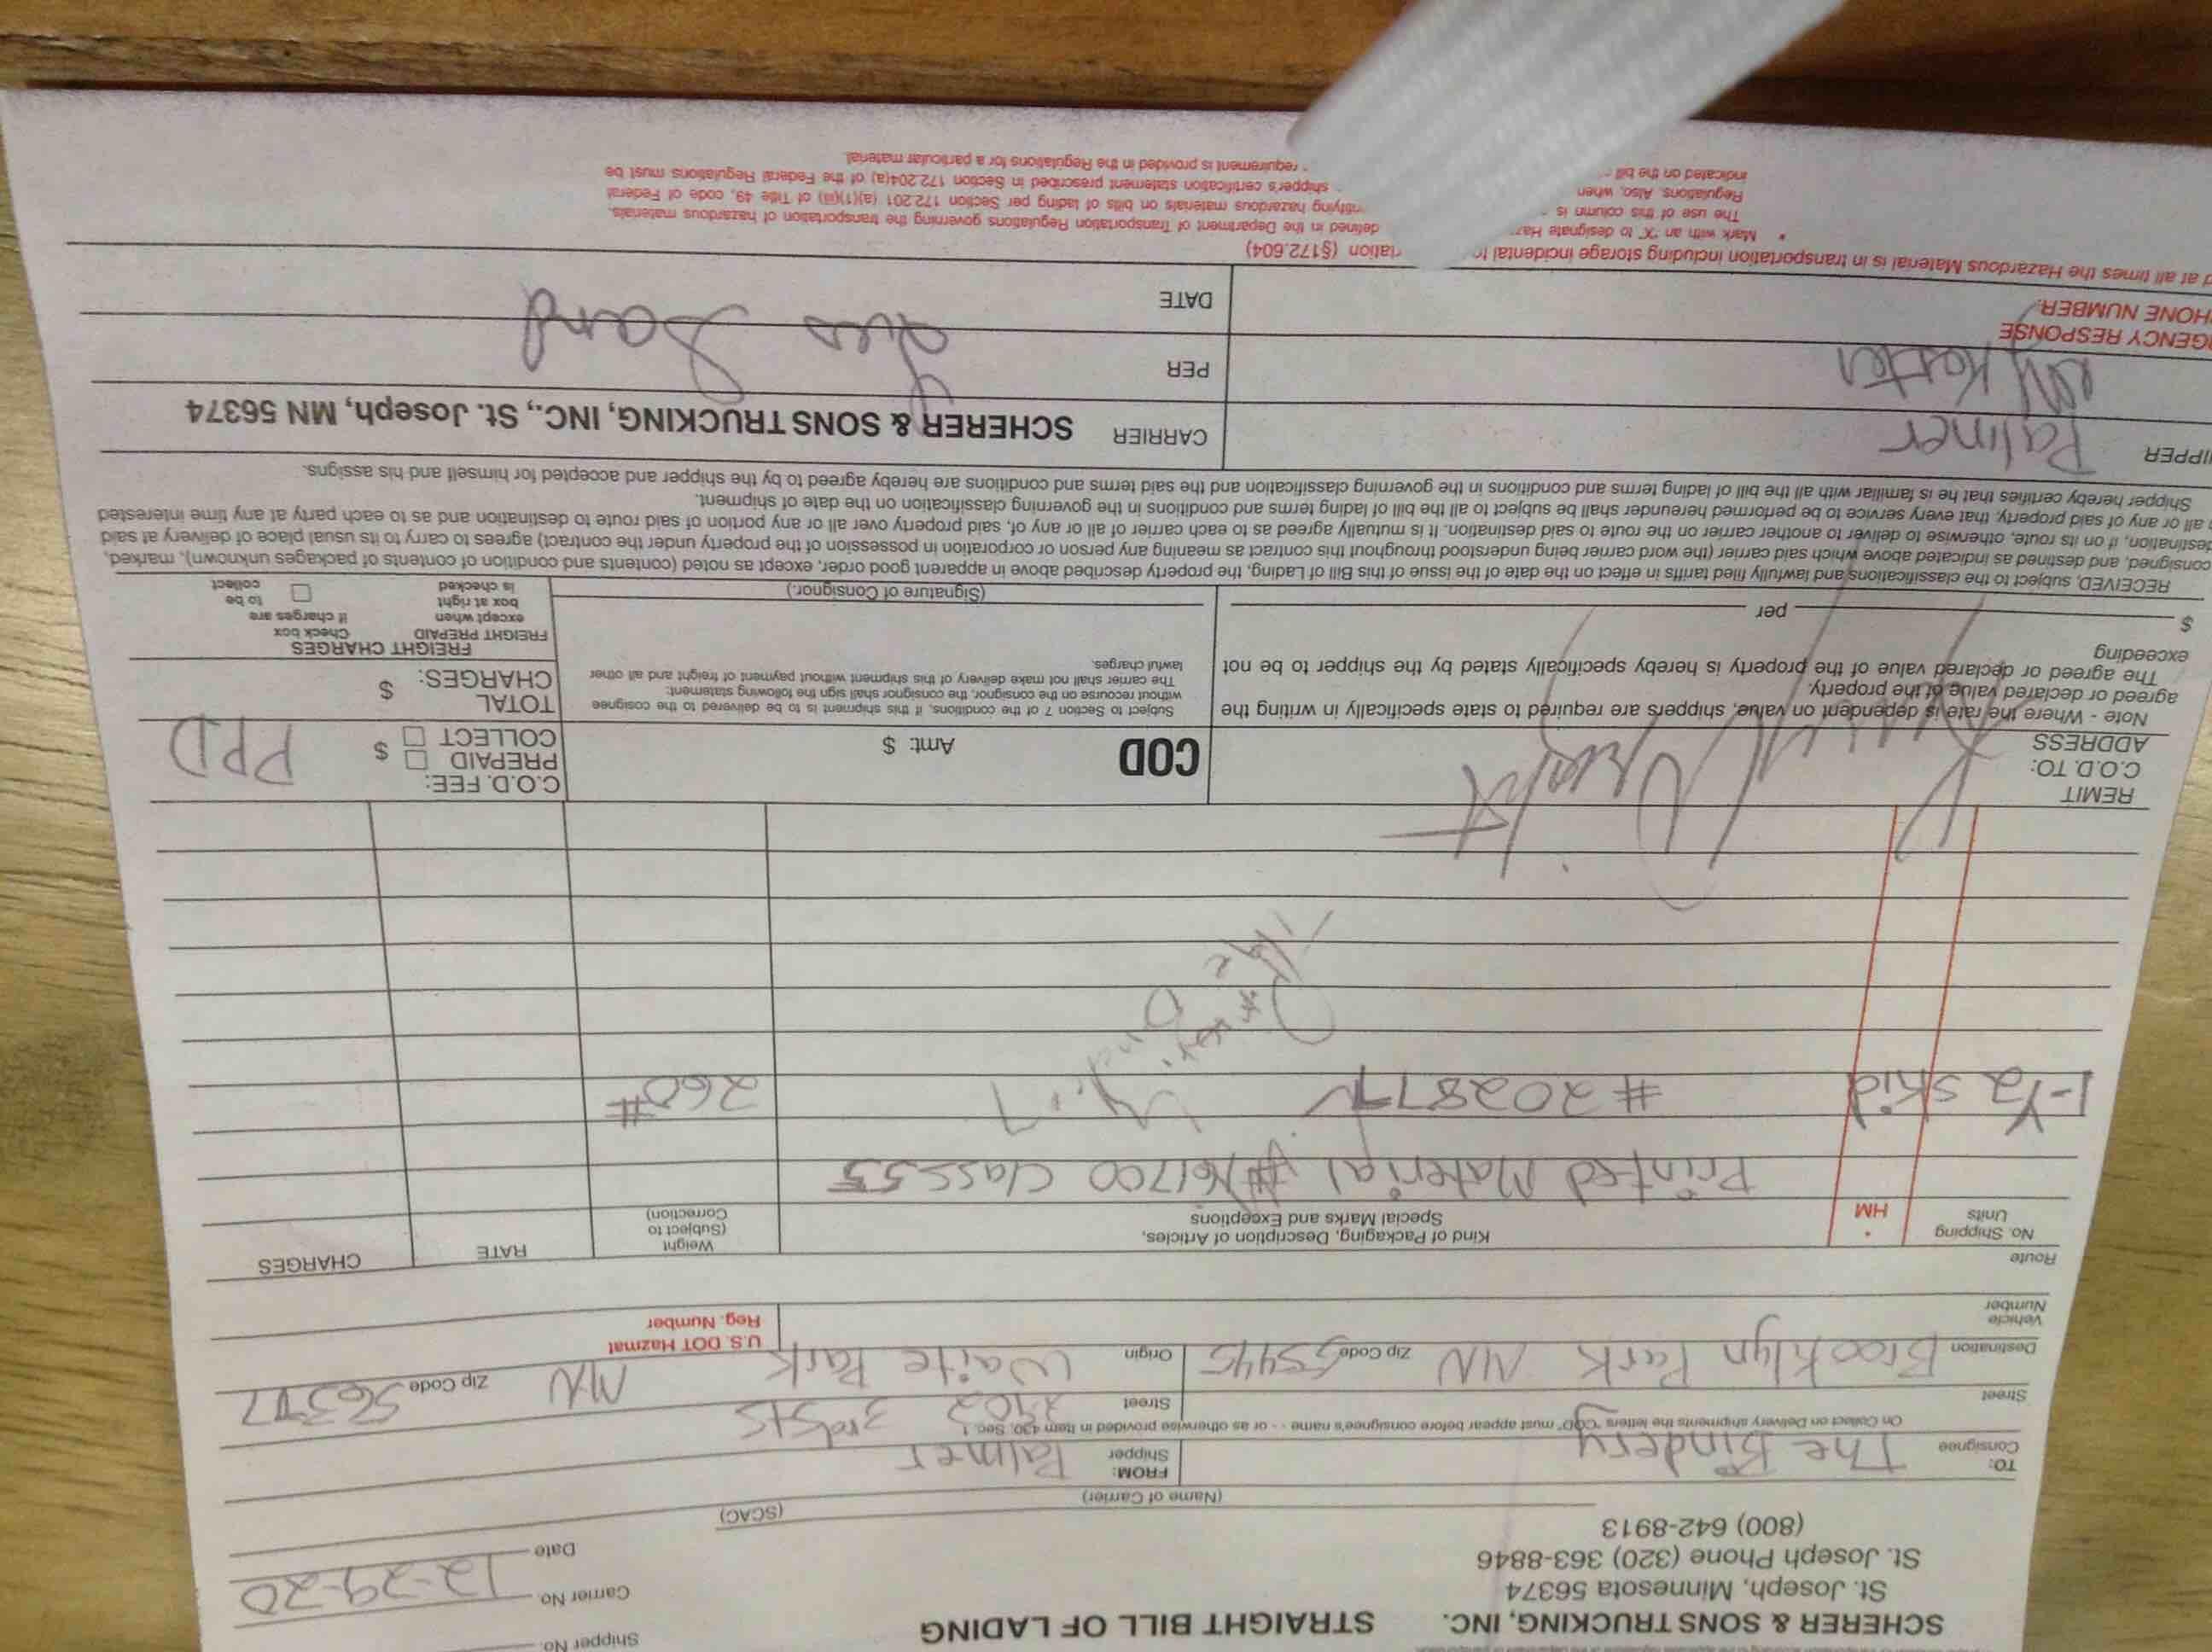 Shipper No.
SCHERER & SONS TRUCKING, INC.
STRAIGHT BILL OF LADING
St. Joseph, Minnesota 56374
Carrier No.
St. Joseph Phone (320) 363-8846
Date 12-29-20
(800) 642-8913
(Name of Carrier)
(SCAC)
TO:
Consignee The Bindery
FROM:
Shipper Palmer
On Collect on Delivery shipments the letters "COD" must appear before consignee's name - - or as otherwise provided in Item 430, Sec. 1
Street
Street 2902 3rd St S
Destination Brooklyn Park MN Zip Code 55445
Origin Waite Park MN Zip Code 56377
Vehicle
Number
U.S. DOT Hazmat
Reg. Number
Route
No. Shipping
Units
*
HM
Kind of Packaging, Description of Articles,
Special Marks and Exceptions
Weight
(Subject to
Correction)
RATE
CHARGES
Printed Material #161700 Class 55
1-1/2 skid #202877 260#
REMIT
C.O.D. TO:
ADDRESS
COD Amt: $
C.O.D. FEE:
PREPAID
COLLECT
$
PPD
Note - Where the rate is dependent on value, shippers are required to state specifically in writing the
agreed or declared value of the property.
The agreed or declared value of the property is hereby specifically stated by the shipper to be not
exceeding
$ per
Subject to Section 7 of the conditions, if this shipment is to be delivered to the cosignee
without recourse on the consignor, the consignor shall sign the following statement:
The carrier shall not make delivery of this shipment without payment of freight and all other
lawful charges.
(Signature of Consignor.)
TOTAL
CHARGES: $
FREIGHT CHARGES
FREIGHT PREPAID
except when
box at right
is checked
Check box
if charges are
to be
collect
RECEIVED, subject to the classifications and lawfully filed tariffs in effect on the date of the issue of this Bill of Lading, the property described above in apparent good order, except as noted (contents and condition of contents of packages unknown), marked,
consigned, and destined as indicated above which said carrier (the word carrier being understood throughout this contract as meaning any person or corporation in possession of the property under the contract) agrees to carry to its usual place of delivery at said
destination, if on its route, otherwise to deliver to another carrier on the route to said destination. It is mutually agreed as to each carrier of all or any of, said property over all or any portion of said route to destination and as to each party at any time interested
all or any of said property, that every service to be performed hereunder shall be subject to all the bill of lading terms and conditions in the governing classification on the date of shipment.
Shipper hereby certifies that he is familiar with all the bill of lading terms and conditions in the governing classification and the said terms and conditions are hereby agreed to by the shipper and accepted for himself and his assigns.
IPPER Palmer
CARRIER SCHERER & SONS TRUCKING, INC., St. Joseph, MN 56374
Karten
PER
GENCY RESPONSE
HONE NUMBER:
DATE
d at all times the Hazardous Material is in transportation including storage incidental to
rtation (§172.604)
* Mark with an "X" to designate Haz
defined in the Department of Transportation Regulations governing the transportation of hazardous materials.
The use of this column is
ntifying hazardous materials on bills of lading per Section 172.201 (a)(1)(iii) of Title 49, code of Federal
Regulations. Also, when
shipper's certification statement prescribed in Section 172.204(a) of the Federal Regulations must be
indicated on the bill
requirement is provided in the Regulations for a particular material.